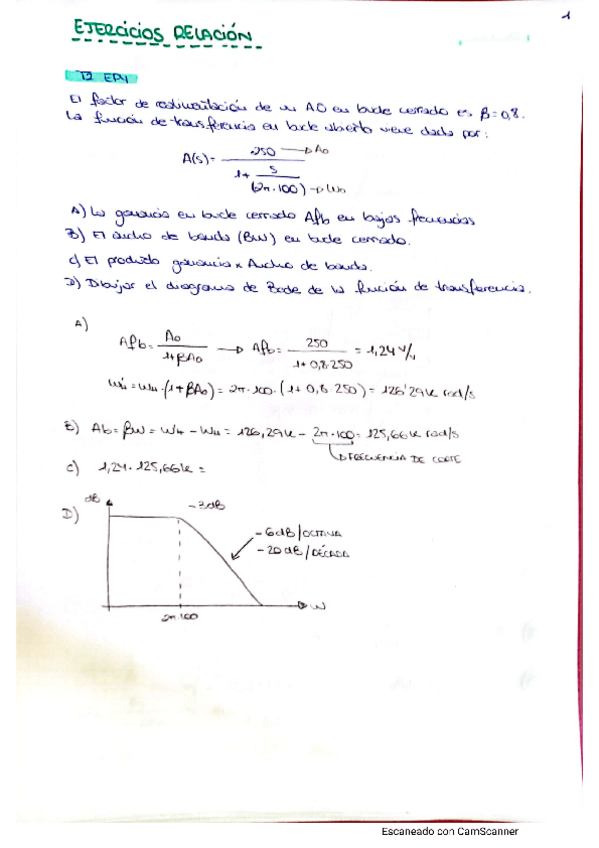 1
EJERCICIOS RELACIÓN
T2 EP4
El factor de realimentación de un AO en bucle cerrado es β=0,8.
La función de transferencia en bucle abierto viene dada por:
A(s)= 250 → A₀ / 1 + s / (2π·100) → W₀
A) La ganancia en bucle cerrado Afb en bajas frecuencias
B) El ancho de banda (BW) en bucle cerrado.
C) El producto ganancia x Ancho de banda.
D) Dibujar el diagrama de Bode de la función de transferencia.
A)
Afb = A₀ / 1+βA₀ → Afb = 250 / 1+0,8·250 = 1,24 V/V
= WH·(1+βA₀) = 2π·100·(1+0,8·250) = 126'29k rad/s
B) Ab = BW = WH - WH = 126,29k - 2π·100 = 125,66k rad/s
FRECUENCIA DE CORTE
C) 1,24·125,66k =
D)
dB
-3dB
-6dB/OCTAVA
-20dB/DÉCADA
W
2π·100
Escaneado con CamScanner